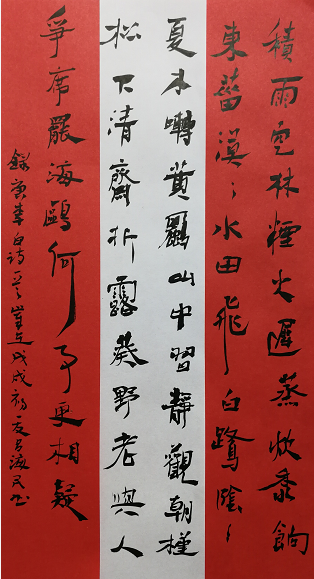 積雨空林煙火遲蒸炊黍餉
東菑漠〻水田飛白鷺陰〻
夏木囀黄鸝山中習靜觀朝槿
松下清齋折露葵野老與人
爭席罷海鷗何事更相疑
錄唐李白诗戊戌初夏海民书